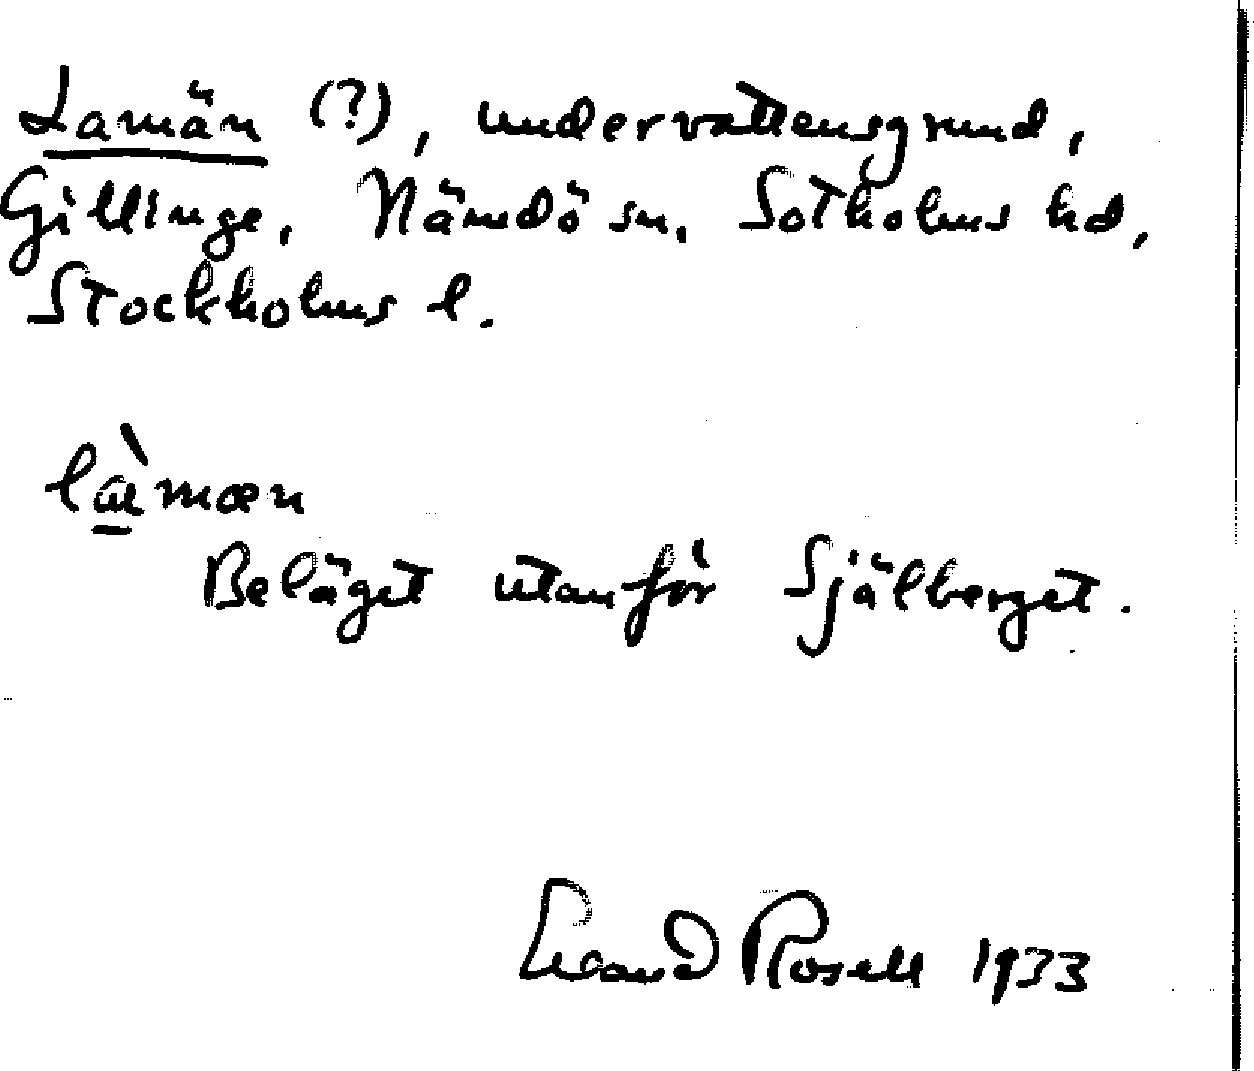 Lamän (?), undervattensgrund,
Gillinge, Nämdö sn, Sotholms hd,
Stockholms l.
Beläget utanför Själberget.
Rosell 1933